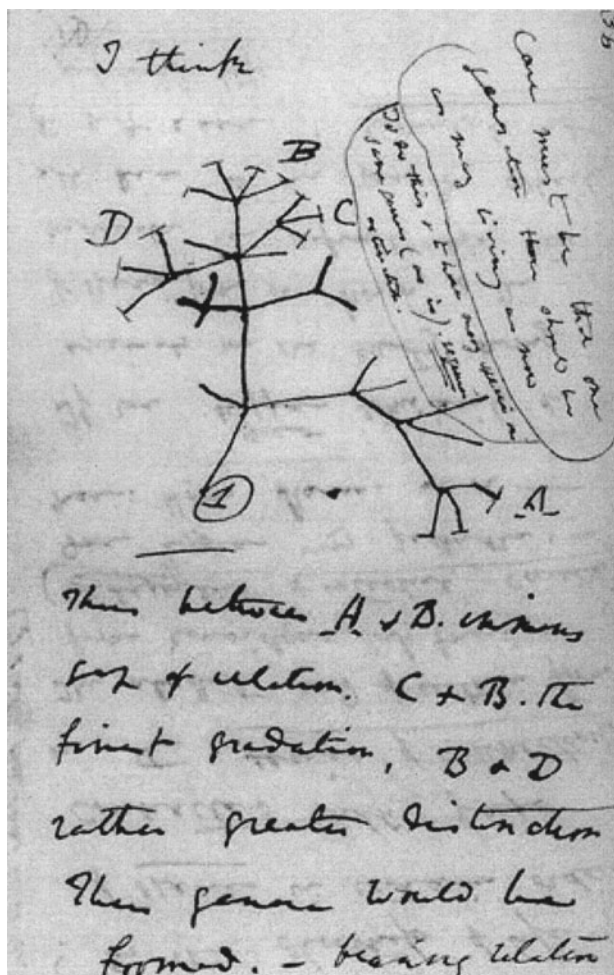 I think
B
D
C
1
A
Case must be that one
generation then should be
as many living as now
To do this & to have many species in
same genus (as is). requires
extinction.
Thus between A & B. immens
gap of relation. C & B. the
finest gradation, B & D
rather greater distinction
Thus genera would be
formed. — bearing relation